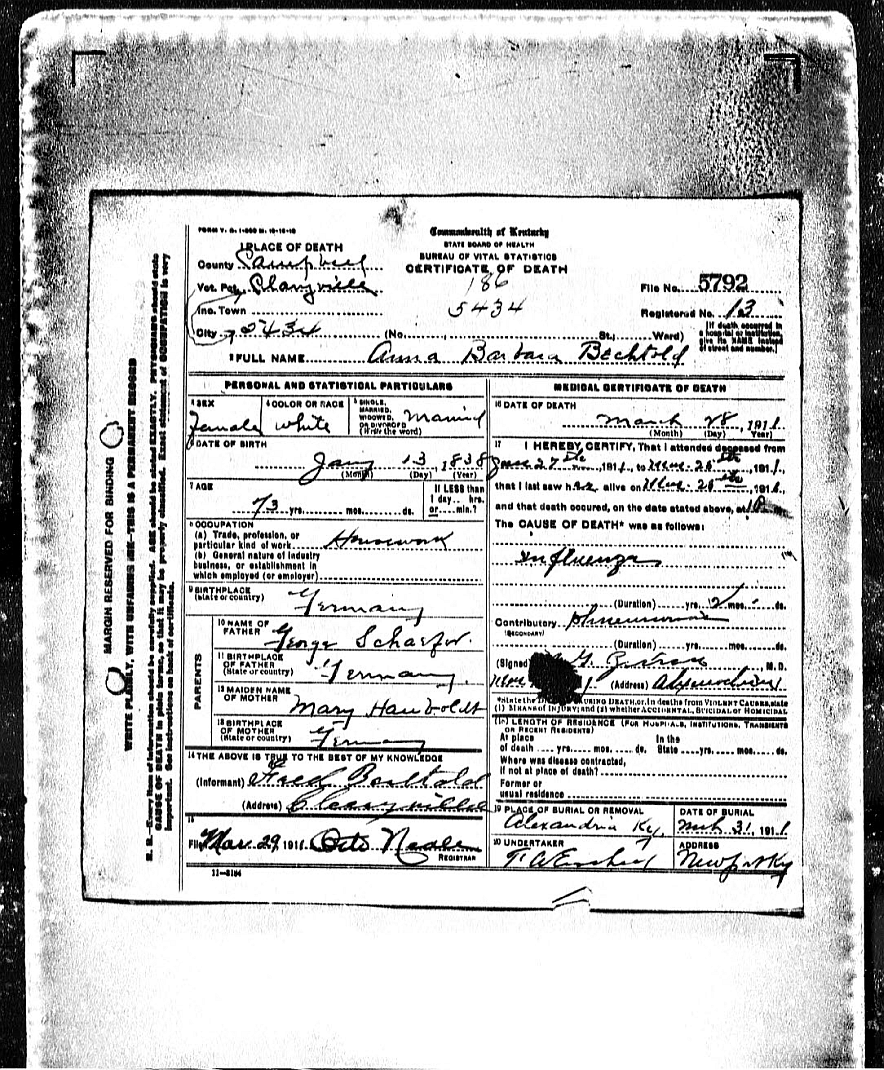 FORM V. S. 1-
Commonwealth of Kentucky
STATE BOARD OF HEALTH
BUREAU OF VITAL STATISTICS
CERTIFICATE OF DEATH
1 PLACE OF DEATH
County Campbell
Vot. Pct. Claryville
Inc. Town
City 5434 (No. St., Ward)
186
5434
File No. 5792
Registered No. 13
[If death occurred in a hospital or institution, give its NAME instead of street and number.]
2 FULL NAME Anna Barbara Bechtold
PERSONAL AND STATISTICAL PARTICULARS
3 SEX
Female
4 COLOR OR RACE
White
5 SINGLE, MARRIED, WIDOWED, OR DIVORCED (Write the word)
Married
6 DATE OF BIRTH
Jany 13, 1838
(Month) (Day) (Year)
7 AGE
73 yrs. mos. ds.
If LESS than 1 day.. hrs. or.... min.?
8 OCCUPATION
(a) Trade, profession, or particular kind of work Housework
(b) General nature of industry business, or establishment in which employed (or employer)
9 BIRTHPLACE
(State or country) Germany
PARENTS
10 NAME OF FATHER George Schaefer.
11 BIRTHPLACE OF FATHER
(State or country) Germany.
12 MAIDEN NAME OF MOTHER Mary Hauboldt
13 BIRTHPLACE OF MOTHER
(State or country) Germany
14 THE ABOVE IS TRUE TO THE BEST OF MY KNOWLEDGE
(Informant) Fred
(Address) Claryville
15
Filed Mar. 29, 1911.
REGISTRAR
11-3184
MEDICAL CERTIFICATE OF DEATH
16 DATE OF DEATH
March 28, 1911
(Month) (Day) Year)
17 I HEREBY CERTIFY, That I attended deceased from
27th, 1911, to 26th, 1911,
that I last saw her alive on 26th, 1911,
and that death occured, on the date stated above, at
The CAUSE OF DEATH* was as follows:
Influenza
(Duration) yrs. 2 mos. ds.
Contributory Pneumonia
(SECONDARY)
(Duration) yrs. mos. ds.
(Signed) M. D.
(Address) Alexandria
*State the DISEASE CAUSING DEATH, or, in deaths from VIOLENT CAUSES, state (1) MEANS OF INJURY; and (2) whether ACCIDENTAL, SUICIDAL OR HOMICIDAL
18 LENGTH OF RESIDENCE (FOR HOSPITALS, INSTITUTIONS, TRANSIENTS OR RECENT RESIDENTS)
At place of death yrs. mos. ds. In the State yrs. mos. ds.
Where was disease contracted,
if not at place of death?
Former or usual residence
19 PLACE OF BURIAL OR REMOVAL
Alexandria Ky,
DATE OF BURIAL
Mch 31, 1911
20 UNDERTAKER
ADDRESS
Newport Ky
MARGIN RESERVED FOR BINDING
WRITE PLAINLY, WITH UNFADING INK—THIS IS A PERMANENT RECORD
N. B.—Every item of information should be carefully supplied. AGE should be stated EXACTLY. PHYSICIANS should state
CAUSE OF DEATH in plain terms, so that it may be properly classified. Exact statement of OCCUPATION is very
important. See instructions on back of certificate.